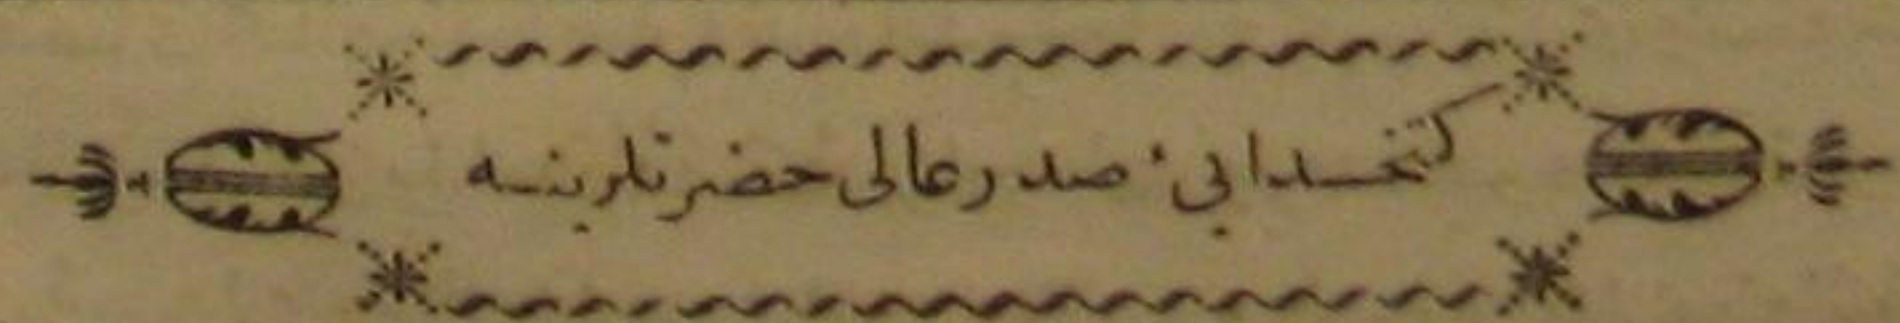 كتخدايئ صدر عالى حضرتلرينه